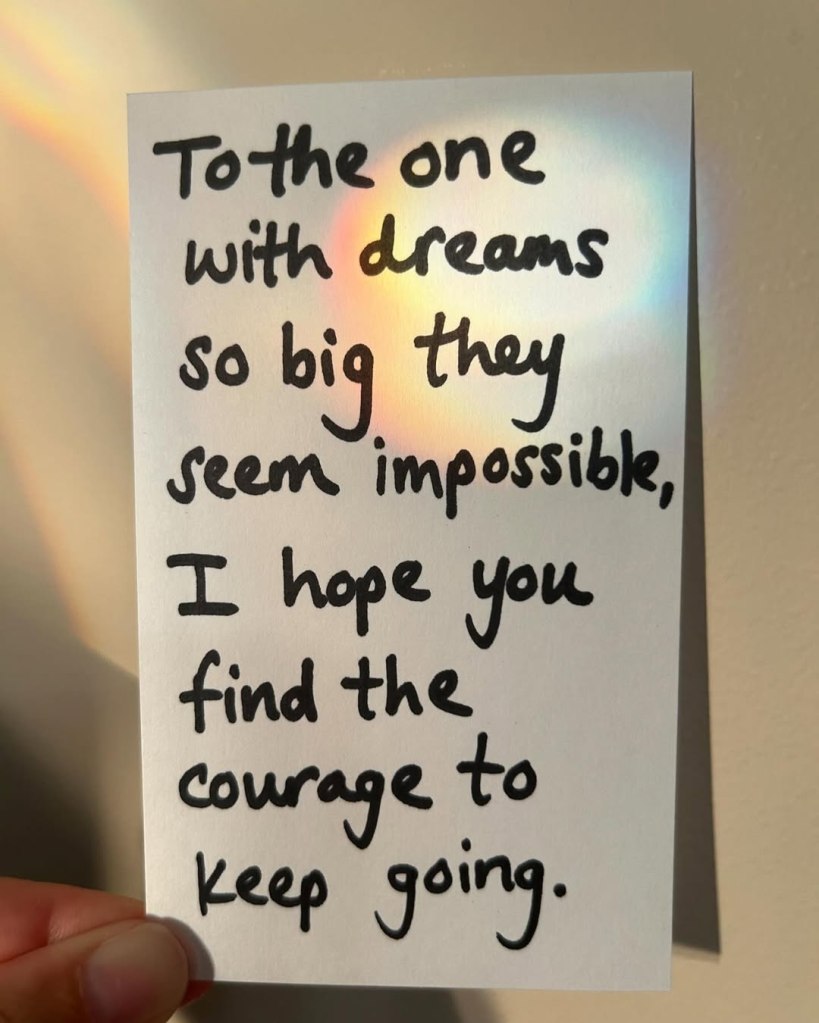 To the one
with dreams
so big they
seem impossible,
I hope you
find the
courage to
keep going.